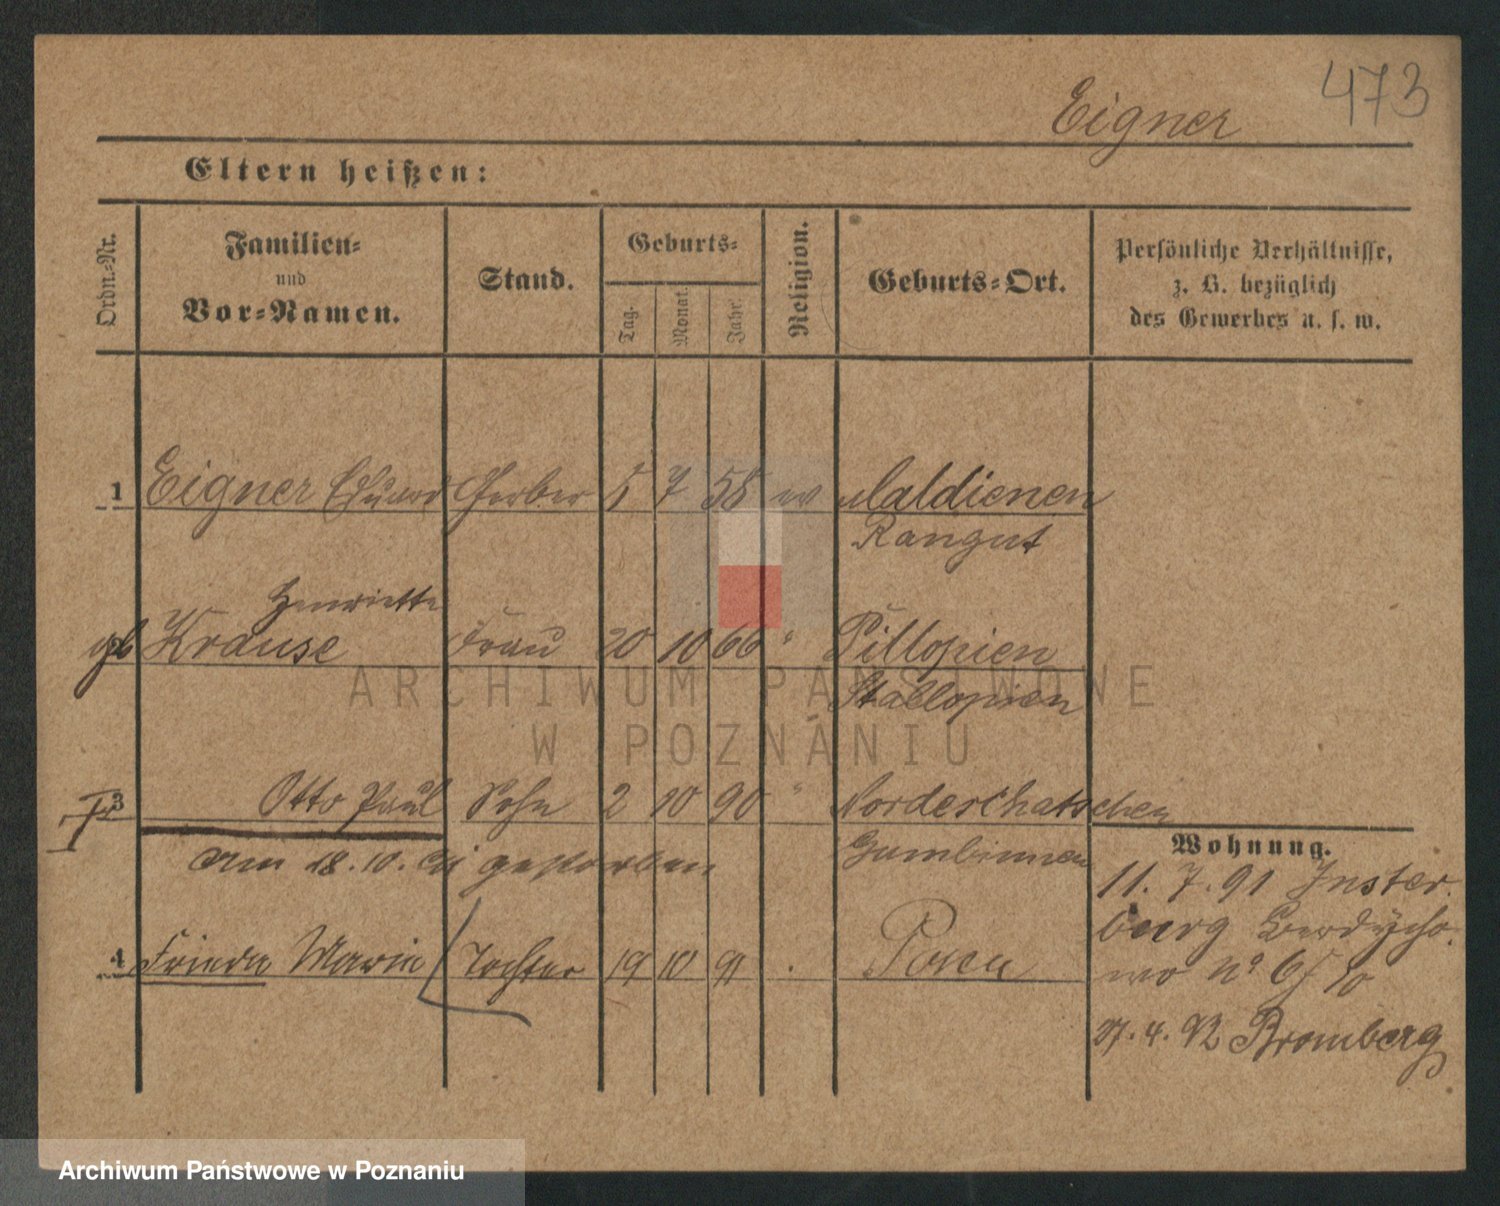 473
Eigner
Eltern heißen:
Ordn.-Nr.
Familien-
und
Vor-Namen.
Stand.
Geburts-
Tag.
Monat.
Jahr.
Religion.
Geburts-Ort.
Persönliche Verhältnisse,
z. B. bezüglich
des Gewerbes u. s. w.
1 Eigner Eduard Gerber 5 7 58 ev Maldienen
Rangut
Henriette
gb Krause Frau 20 10 66 " Pillopien
Stallopien
3 Otto Paul Sohn 2 10 90 " Nordeschatschen
am 18.10. 91 gestorben
Gumbinnen
4 Frieda Marie Tochter 19 10 91 Posen
Wohnung.
11. 7. 91 Inster-
burg Berdycho-
wo No 65
27. 4. 92 Bromberg
ARCHIWUM PAŃSTWOWE
W POZNANIU
Archiwum Państwowe w Poznaniu